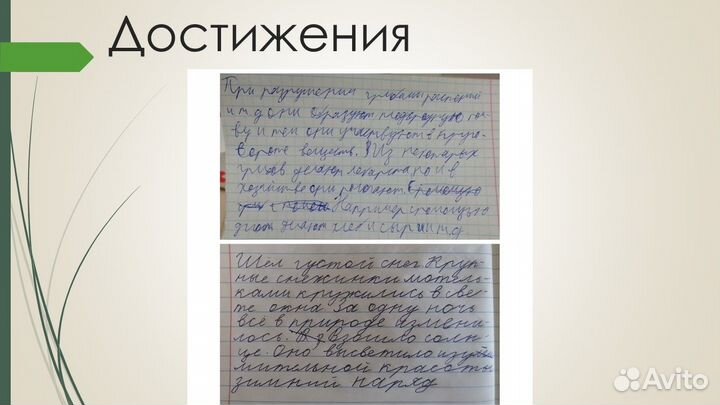 Достижения
При разрушении грибами растений
и т.д они образуют плодородную по-
ву и тем они участвуют в круго-
вороте веществ. Из некоторых
грибов делают лекарства по и в
хозяйстве они помогают. С помощью
Например с помощью
делают хлеб и сыр и т.д.
Шел густой снег. Круп-
ные снежинки мотель-
ками кружились в све-
те окна. За одну ночь
всё в природе измени-
лось. Взошло солн-
це. Оно высветило изуми-
мительной красоты
зимний наряд
Avito